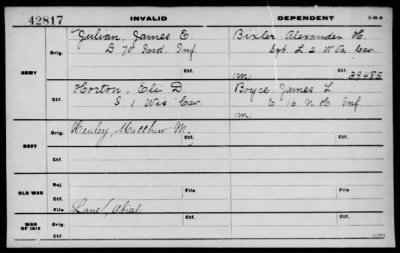 42817
INVALID
DEPENDENT
ARMY
Orig.
Julian, James E.
D 70 Ind. Inf
Bixler Alexander H.
Sgt. L 2 W Va Cav
(m) 39485
Ctf.
Horton, Eli D.
S 1 Wis Cav
Boyce James L.
E 16 N H Inf
m
NAVY
Orig.
Henley, Matthew M.
Ctf.
Ctf.
OLD WAR
Rej.
Ctf.
File
File
File
Lane, Abial
WAR OF 1812
Orig.
Ctf.
Ctf.